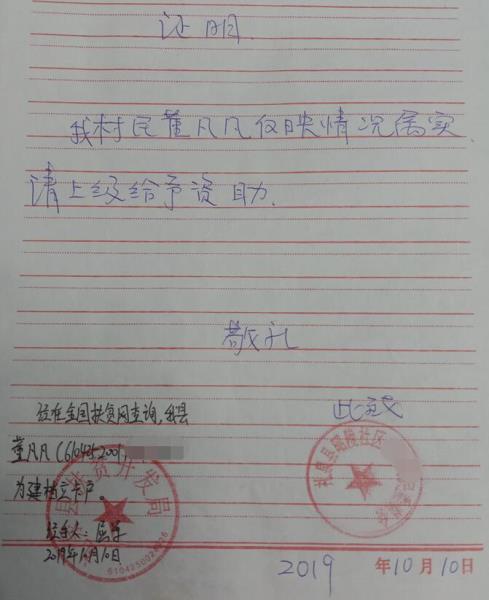 证明
我村民董凡凡仅映情况属实
请上级给予资助.
敬礼
此致
经在全国扶贫网查询,我县
董凡凡(610425200
为建档立卡户。
经手人:
2019年10月10日
县扶贫开发局
6104250024026
礼泉县昭陵社区
2019年10月10日